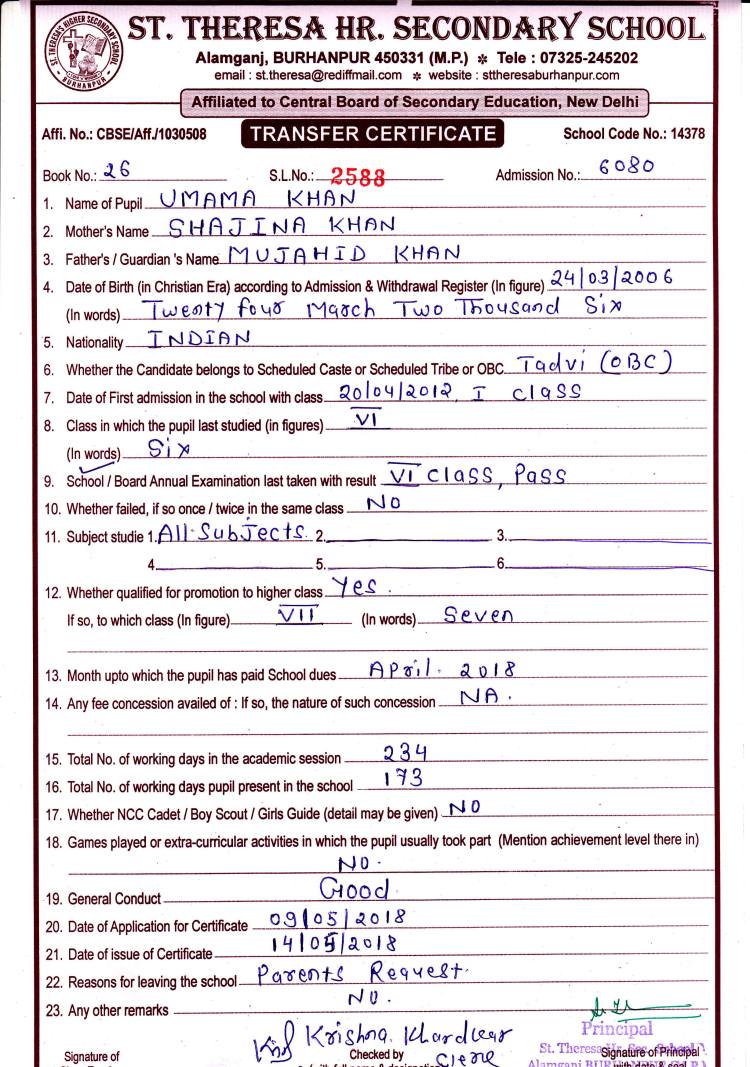 ST. THERESA HR. SECONDARY SCHOOL
ST. THERESA'S HIGHER SECONDARY SCHOOL
BURHANPUR
Alamganj, BURHANPUR 450331 (M.P.) * Tele : 07325-245202
email : st.theresa@rediffmail.com * website : sttheresaburhanpur.com
Affiliated to Central Board of Secondary Education, New Delhi
Affi. No.: CBSE/Aff./1030508 TRANSFER CERTIFICATE School Code No.: 14378
Book No.: 26 S.L.No.: 2588 Admission No.: 6080
1. Name of Pupil UMAMA KHAN
2. Mother's Name SHAJINA KHAN
3. Father's / Guardian 's Name MUJAHID KHAN
4. Date of Birth (in Christian Era) according to Admission & Withdrawal Register (In figure) 24/03/2006
(In words) Twenty four March Two Thousand Six
5. Nationality INDIAN
6. Whether the Candidate belongs to Scheduled Caste or Scheduled Tribe or OBC Tadvi (OBC)
7. Date of First admission in the school with class 20/04/2012, I class
8. Class in which the pupil last studied (in figures) VI
(In words) Six
9. School / Board Annual Examination last taken with result VI class, Pass
10. Whether failed, if so once / twice in the same class NO
11. Subject studie 1. All Subjects 2. 3.
4. 5. 6.
12. Whether qualified for promotion to higher class Yes.
If so, to which class (In figure) VII (In words) Seven
13. Month upto which the pupil has paid School dues April. 2018
14. Any fee concession availed of : If so, the nature of such concession NA.
15. Total No. of working days in the academic session 234
16. Total No. of working days pupil present in the school 173
17. Whether NCC Cadet / Boy Scout / Girls Guide (detail may be given) NO
18. Games played or extra-curricular activities in which the pupil usually took part (Mention achievement level there in)
NO.
19. General Conduct Good
20. Date of Application for Certificate 09/05/2018
21. Date of issue of Certificate 14/05/2018
22. Reasons for leaving the school Parents Request.
23. Any other remarks NO.
Krishna. Khardekar
Principal
Signature of Checked by Clerk St. Theresa Hr. Sec. School Signature of Principal